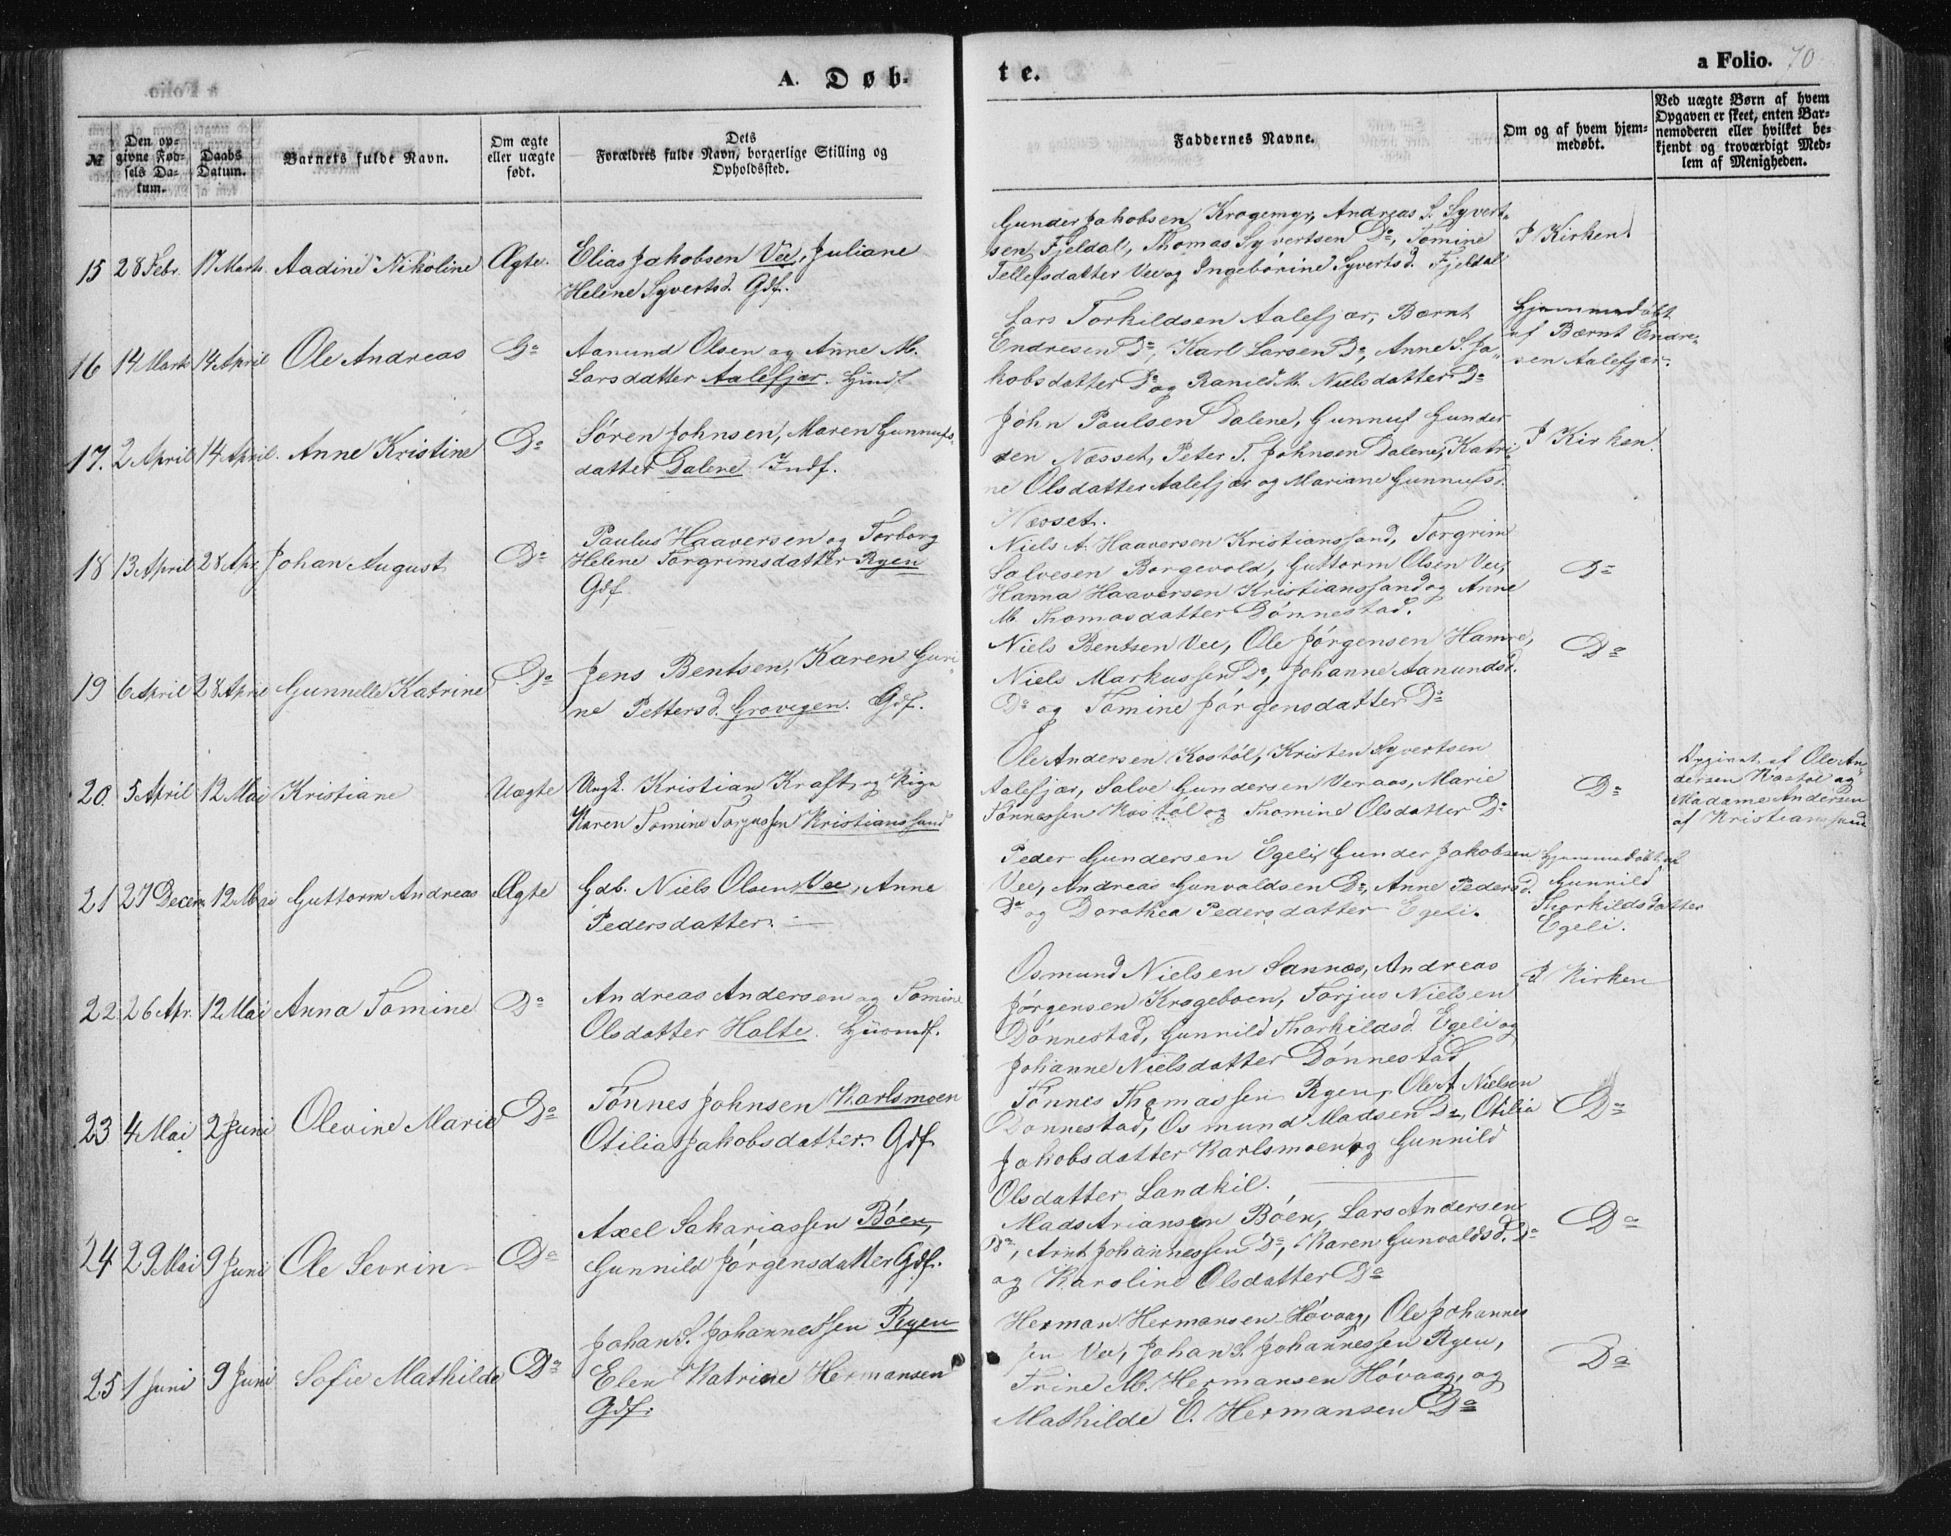 A. Døb-
te.
a Folio. 70
№
Den opgivne Fødsels Datum.
Daabs Datum.
Barnets fulde Navn.
Om ægte eller uægte født.
Dets Forældres fulde Navn, borgerlige Stilling og Opholdssted.
Faddernes Navne.
Om og af hvem hjemmedøbt.
Ved uægte Børn af hvem Opgaven er skeet, enten Barnemoderen eller hvilket bekjendt og troværdigt Medlem af Menigheden.
15 28 Febr. 17 Marts. Aadine Nikoline Ægte.
Elias Jakobsen Vee, Juliane
Helene Syvertsd. Gdf.
Gunder Jakobsen Krogemyr, Andreas S. Syvert-
sen Fjeldal, Thomas Syvertsen Do, Tomine
Tellefsdatter Vee og Ingeborine Syvertsd. Fjeldal
I Kirken.
16 14 Marts 14 April Ole Andreas Do
Aanund Olsen og Anne M.
Larsdatter Aalefjær.
Lars Torkildsen Aalefjær, Bærnt
Endresen Do, Karl Larsen Do, Anne S. Ja-
kobsdatter Do og Ranild M. Nielsdatter Do
Hjemmedøbt
af Bærnt Endre-
sen Aalefjær.
17. 2 April 14 April. Anne Kristine Do
Søren Johnsen, Maren Gunnufs
datter Dalene. Indf.
John Paulsen Dalene, Gunnuf Gunder
sen Næsset, Peter T. Johnsen Dalene, Katri-
ne Olsdatter Aalefjær og Mariane Gunnufs.
Næsset.
I Kirken.
18 13 April 28 Apr Johan August Do
Paulus Haaversen og Torborg
Helene Torgrimsdatter Ryen
Gdf.
Niels A. Haaversen Kristianssand, Torgrim
Salvesen Borgevold, Guttorm Olsen Vee,
Hanna Haaversen Kristianssand og Anne
M. Thomasdatter Dønnestad.
Do
19 6 April 28 April Gunnelle Katrine Do
Jens Bentsen, Karen Guri-
ne Pettersd. Grovigen. Gdf.
Niels Bentsen Vee, Ole Jørgensen Hamre,
Niels Markussen Do, Johanne Aanundsd.
Do og Tomine Jørgensdatter Do
Do
20. 5 April 12 Mai Kristiane Uægte
Ungk. Kristian Kraft og Pige
Karen Tomine Torjussen Kristianssand
Ole Andersen Kostøl, Kristen Syvertsen
Aalefjær, Salve Gundersen Veraas, Marie
Tønnessen Kostøl og Thomine Olsdatter Do
Do
Ole An-
dersen Kostøl og
Madame Andersen
af Kristianssand
21 27 Decem. 12 Mai Guttorm Andreas Ægte
Gdb. Niels Olsen Vee, Anne
Pedersdatter. —
Peder Gundersen Egeli, Gunder Jakobsen
Vee, Andreas Gunvaldsen Do, Anne Pedersd.
Do og Dorothea Pedersdatter Egeli.
Hjemmedøbt af
Gunnild
Thorkildsdatter
Egeli.
22 26 Apr. 12 Mai Anna Tomine Do
Andreas Andersen og Tomine
Olsdatter Holte. Huusmf.
Osmund Nielsen Sannæs, Andreas
Jørgensen Krogeboen, Torjus Nielsen
Dønnestad, Gunnild Thorkildsd. Egeli og
Johanne Nielsdatter Dønnestad
I Kirken
23 4 Mai 2 Juni Olevine Marie Do
Tønnes Johnsen Karlsmoen
Otilia Jakobsdatter. Gdf.
Tønnes Thomassen Ryen, Ole A. Nielsen
Dønnestad, Osmund Madsen Do, Otilia
Jakobsdatter Karlsmoen og Gunnild
Olsdatter Landkil.
Do
24 29 Mai 9 Juni Ole Sevrin Do
Axel Sakariassen Bøen,
Gunnild Jørgensdatter Gdf.
Mads Ariansen Bøen, Lars Andersen
Do, Arnt Johannessen Do, Karen Gunvaldsd. Do
og Karoline Olsdatter Do
Do
25 1 Juni 9 Juni Sofie Mathilde Do
Johan S. Johannessen Ryen
Elen Katrine Hermansen
Gdf.
Herman Hermansen Høvaag, Ole Johannes
sen Vee, Johan S. Johannessen Ryen,
Trine M. Hermansen Høvaag, og
Mathilde O. Hermansen Do
Do